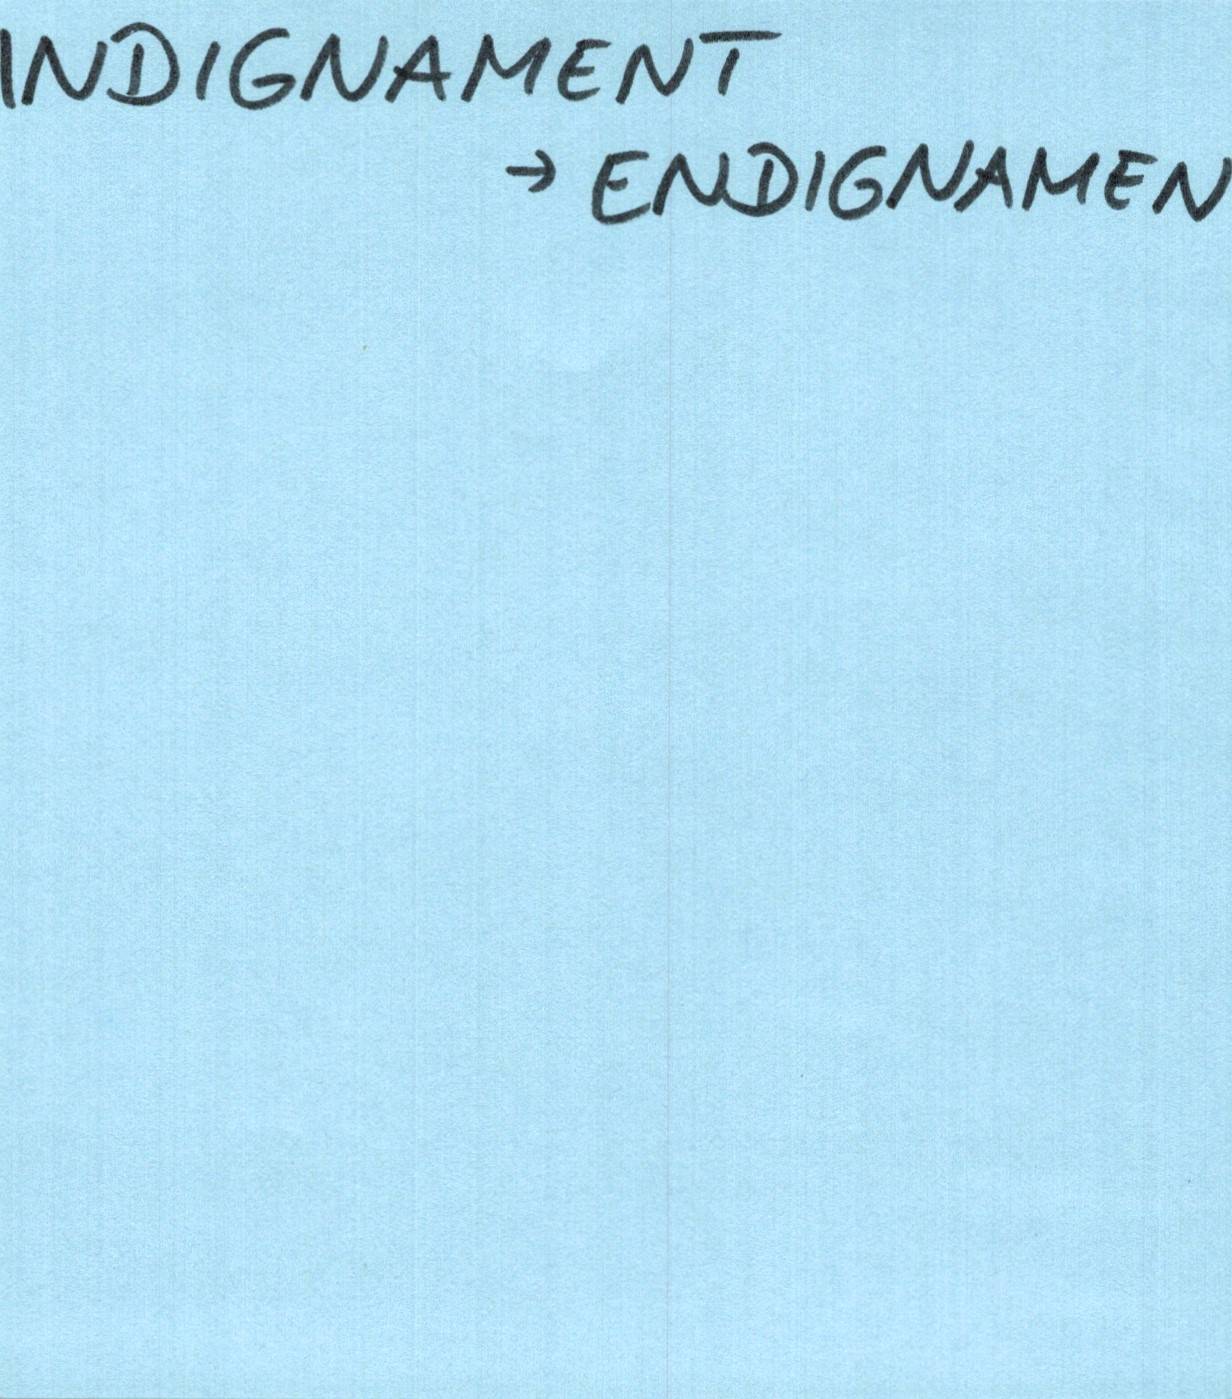 INDIGNAMENT
→ ENDIGNAMEN